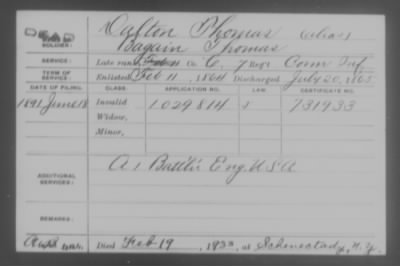 DEAD
Dalton Thomas (alias)
SOLDIER: Bagain Thomas
SERVICE: Late rank, Co. C, 7 Reg't Conn Inf
TERM OF SERVICE: Enlisted Feb 11, 1864 Discharged July 20, 1865
DATE OF FILING. CLASS. APPLICATION NO. LAW. CERTIFICATE NO.
1891 June 18 Invalid 1029814 731933
Widow,
Minor,
ADDITIONAL SERVICES: A, 1 Battl'n Eng. U.S.A
REMARKS:
Died Feb 19, 1933, at Schenectady, N.Y.